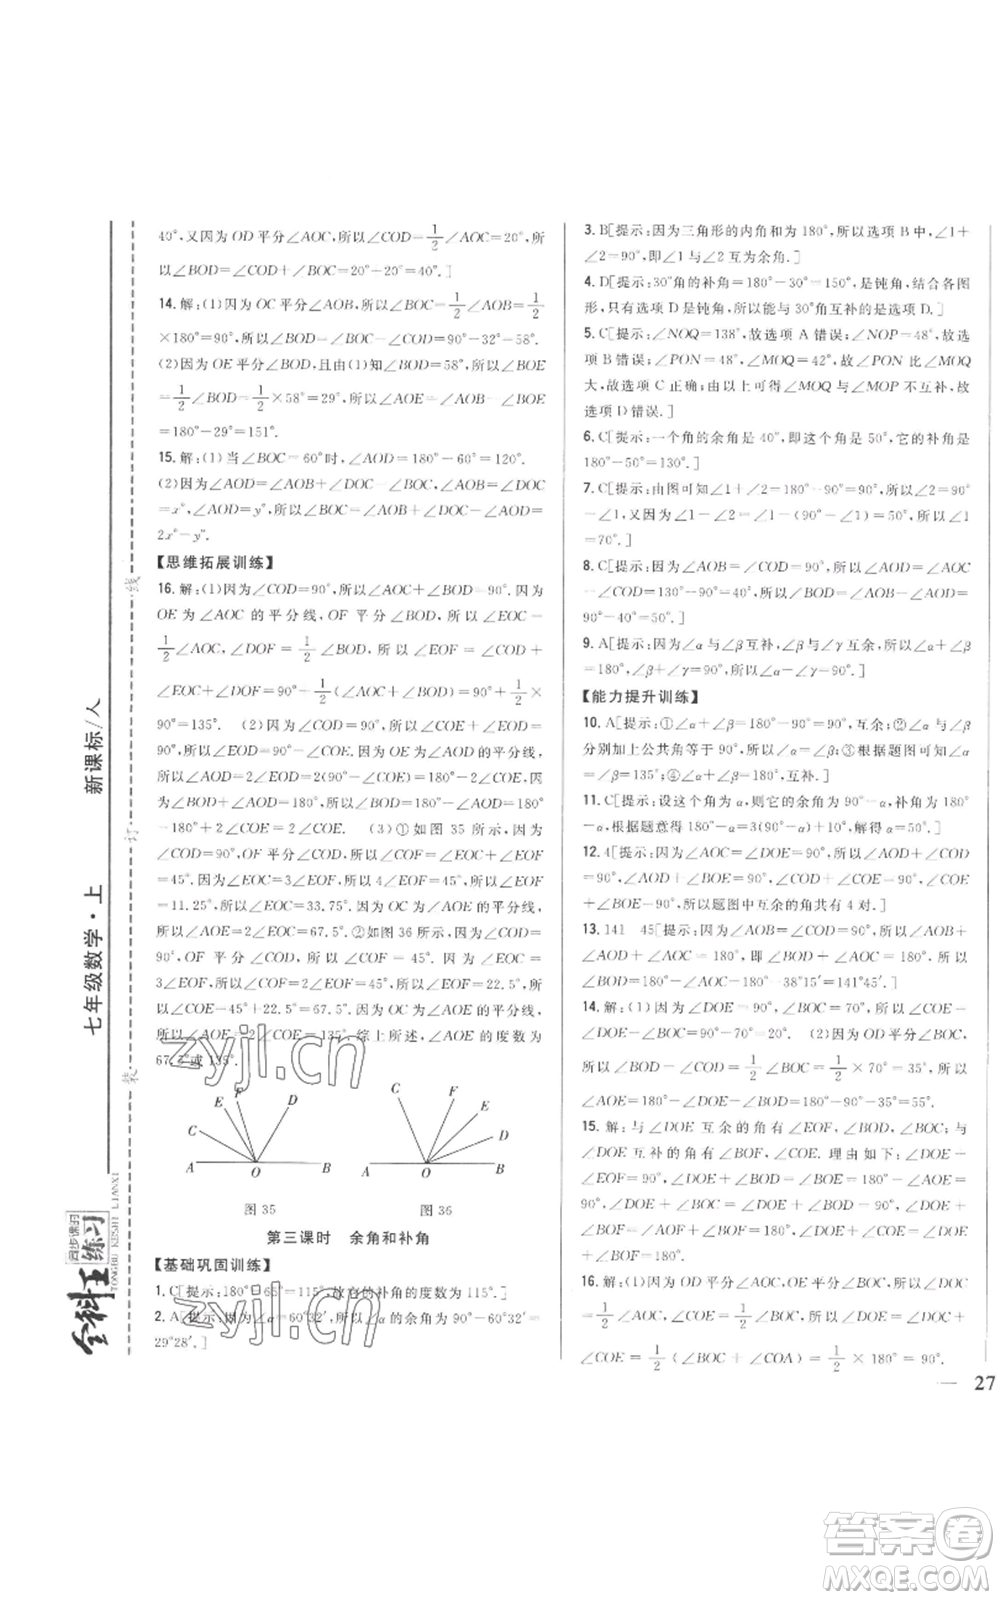 40°,又因为 OD 平分∠AOC,所以∠COD=1/2∠AOC=20°,所以∠BOD=∠COD+∠BOC=20°+40°=60°.]
14.解:(1)因为 OC 平分∠AOB,所以∠BOC=1/2∠AOB=1/2
×180°=90°,所以∠BOD=∠BOC-∠COD=90°-32°=58°.
(2)因为 OE 平分∠BOD,且由(1)知∠BOD=58°,所以∠BOE=
1/2∠BOD=1/2×58°=29°,所以∠AOE=∠AOB-∠BOE
=180°-29°=151°.
15.解:(1)当∠BOC=60°时,∠AOD=180°-60°=120°.
(2)因为∠AOB+∠BOC=∠COD+∠BOC,∠BOC
=x°,∠AOD=y°,所以∠BOC=∠AOB+∠COD
【思维拓展训练】
16.解:(1)因为∠COD=90°,所以∠AOC+∠BOD=90°.因为
OE 为∠AOC 的平分线,OF 平分∠BOD,所以∠EOC=
1/2∠AOC,∠DOF=1/2∠BOD,所以∠EOF=∠COD
+∠EOC+∠DOF=90°+1/2(∠AOC+∠BOD)=90°+1/2×
90°=135°. (2)因为∠COD=90°,所以∠COE+∠EOD=
90°,所以∠EOD=90°-∠COE.因为 OE 为∠AOD 的平分线,
=180°+2∠COE=2∠COE. (3)①如图 35 所示,因为
∠COD=90°,OF 平分∠COD,所以∠COF=∠COE+∠EOF=
45°.因为∠EOC=3∠EOF,所以 4∠EOF=45°,所以∠EOF
=11.25°,所以∠COE=33.75°.因为 OC 为∠AOE 的平分线,
所以∠AOE=2∠COE=67.5°.②如图 36 所示,因为∠COD
=90°,OF 平分∠COD,所以∠COF=45°.因为∠EOC=
3∠EOF,所以∠COF=2∠EOF=45°,所以∠EOF=22.5°,所
以∠COE=45°+22.5°=67.5°.因为 OC 为∠AOE 的平分线,
所以∠AOE=2∠COE=135°.综上所述,∠AOE 的度数为
67.5°或 135°.
C E F D A O B
F E D C A O B
图 35 图 36
第三课时 余角和补角
【基础巩固训练】
1.C[提示:180°-65°=115°,故它的补角的度数为 115°.]
2.A[提示:因为∠α=60°32′,所以∠α的余角为 90°-60°32′=
29°28′.]
3.B[提示:因为三角形的内角和为 180°,所以选项 B 中,∠1+
∠2=90°,即∠1 与∠2 互为余角.]
4.D[提示:30°角的补角=180°-30°=150°,是钝角,结合各图
形,只有选项 D 是钝角,所以能与 30°角互补的是选项 D.]
5.C[提示:∠NOQ=138°,故选项 A 错误;∠NOP=48°,故选
项 B 错误;∠PON=48°,∠MOQ=42°,故∠PON 比∠MOQ
大,故选项 C 正确;由以上可得∠MOQ 与∠MOP 不互补,故
选项 D 错误.]
6.C[提示:一个角的余角是 40°,即这个角是 50°,它的补角是
180°-50°=130°.]
7.C[提示:由图可知∠1+∠2=180°-90°=90°,所以∠1
=70°.]
8.C[提示:因为∠AOB=∠COD=90°,所以∠BOD=∠AOD
-∠AOB=130°-90°=40°,所以∠BOC=∠COD-∠BOD=
90°-40°=50°.]
9.A[提示:因为∠α与∠β互补,∠β与∠γ互余,所以∠α+∠β
=180°,∠β+∠γ=90°,所以∠α-∠γ=90°.]
【能力提升训练】
10.A[提示:①∠α+∠β=180°-90°=90°,互余;②∠α与∠β
分别加上公共角等于 90°,所以∠α=∠β;③根据题图可得∠α
=∠β=135°;④∠α+∠β=180°,互补.]
11.C[提示:设这个角为α,则它的余角为 90°-α,补角为 180°
-α,根据题意得 180°-α=3(90°-α)+10°,解得α=50°.]
12.4[提示:因为∠AOC=∠DOE=90°,所以∠AOD+∠COD
=90°,∠AOD+∠BOE=90°,∠BOE+∠COE=90°,∠COE
+∠COD=90°,所以题图中互余的角共有 4 对.]
13.141 45[提示:因为∠AOB+∠AOD=90°,∠AOC+
∠AOB=90°,所以∠AOC=∠AOD=38°15′,所以∠BOD=
180°-∠AOD=180°-38°15′=141°45′.]
14.解:(1)因为∠DOE=90°,所以∠COE=180°-∠COD
-∠DOE=180°-90°-70°=20°. (2)因为 OD 平分∠BOC,
所以∠BOD=∠COD=1/2∠BOC=1/2×70°=35°,所以
∠AOE=180°-∠BOD-∠DOE=180°-90°-35°=55°.
15.解:与∠DOE 互余的角有∠EOF,∠BOD,∠BOC,与∠DOE
互补的角有∠BOF,∠COE.理由如下:∠DOE+∠EOF=
90°,∠DOE+∠BOD=90°,∠DOE+∠BOC=90°,∠DOE+
∠BOF=180°,∠DOE+∠COE=180°.
16.解:(1)因为∠AOC+∠BOC=180°,所以∠COD+
∠COE=1/2(∠BOC+∠COA)=1/2×180°=90°.
27
七年级数学·上 新课标/人
全科王 同步课时练习
TONGBU KESHI LIANXI
装 订 线
zyjl.cn
zyjl.cn
答案圈
MXQE.COM